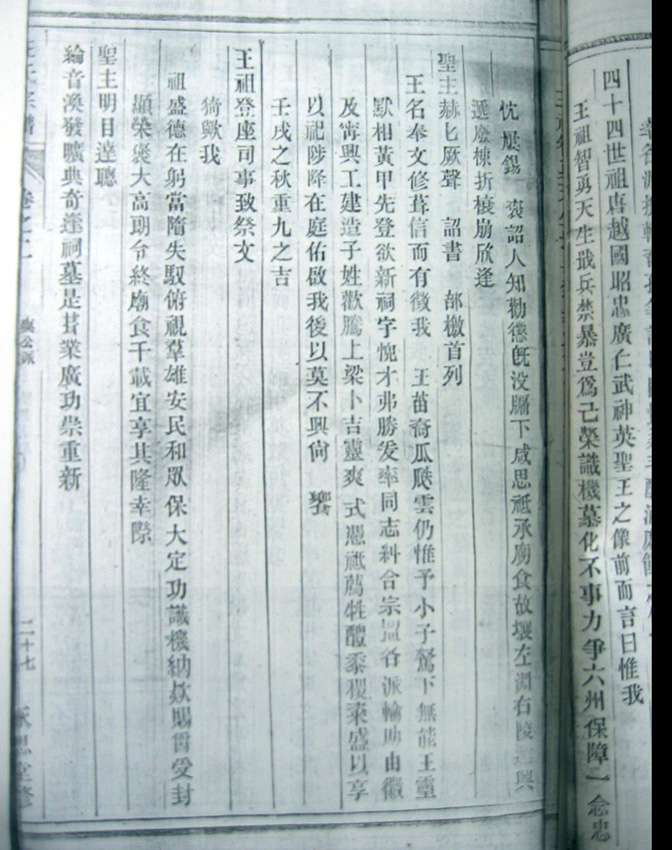 四十四世祖唐越國昭忠廣仁武神英聖王之像前而言曰惟我
王祖智勇天生戢兵禁暴豈爲己榮識機慕化不事力爭六州保障一念忠
忱展錫 袞詔人知勸懲旣没牖下咸思祗承廟食故壤左淵右陵 興
遞廢棟折榱崩欣逢
聖主赫匕厥聲 詔書 部檄首列
王名奉文修葺信而有徵我 王苗裔瓜瓞雲仍惟予小子駑下無能王重
默相黃甲先登欲新祠宇愧才弗勝爰率同志糾合宗盟各派輸助由徽
及甯興工建造子姓歡騰上梁卜吉靈爽式憑祗薦牲醴黍稷粢盛以享
以祀陟降在庭佑啟我後以莫不興尙 饗
壬戌之秋重九之吉
王祖登座司事致祭文
猗歟我
祖盛德在躬當隋失馭俯視羣雄安民和眾保大定功識機納欵賜爵受封
顯榮褒大高朗令終廟食千載宜享其隆幸際
聖主明目達聰
綸音渙發曠典奇逢祠墓是葺業廣功崇重新
卷之
公派
二十七